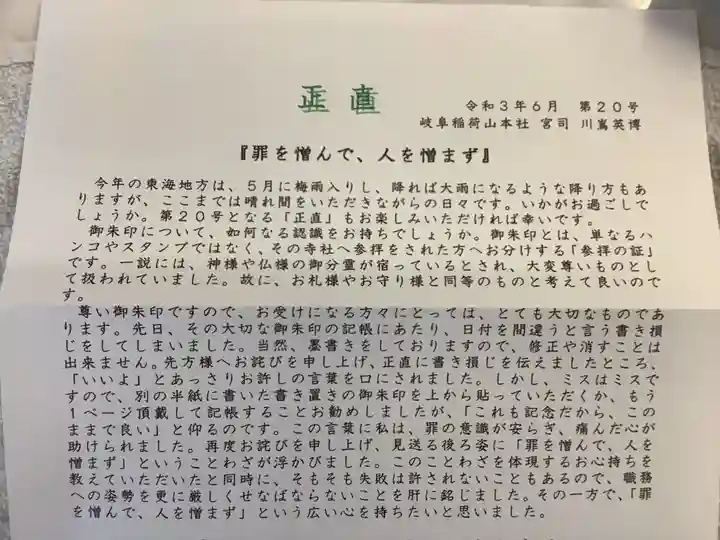 正直
令和3年6月　第20号
岐阜稲荷山本社 宮司 川嶌英博
『罪を憎んで、人を憎まず』
今年の東海地方は、5月に梅雨入りし、降れば大雨になるような降り方もあ
りますが、ここまでは晴れ間をいただきながらの日々です。いかがお過ごしで
しょうか。第20号となる「正直」もお楽しみいただければ幸いです。
御朱印について、如何なる認識をお持ちでしょうか。御朱印とは、単なるハ
ンコやスタンプではなく、その寺社へ参拝をされた方へお分けする「参拝の証」
です。一説には、神様や仏様の御分霊が宿っているとされ、大変尊いものとし
て扱われていました。故に、お札様やお守り様と同等のものと考えて良いので
す。
尊い御朱印ですので、お受けになる方々にとっては、とても大切なものであ
ります。先日、その大切な御朱印の記帳にあたり、日付を間違うと言う書き損
じをしてしまいました。当然、墨書きをしておりますので、修正や消すことは
出来ません。先方様へお詫びを申し上げ、正直に書き損じを伝えましたところ、
「いいよ」とあっさりお許しの言葉を口にされました。しかし、ミスはミスで
すので、別の半紙に書いた書き置きの御朱印を上から貼っていただくか、もう
1ページ頂戴して記帳することお勧めしましたが、「これも記念だから、この
ままで良い」と仰るのです。この言葉に私は、罪の意識が安らぎ、痛んだ心が
助けられました。再度お詫びを申し上げ、見送る後ろ姿に「罪を憎んで、人を
憎まず」ということわざが浮かびました。このことわざを体現するお心持ちを
教えていただいたと同時に、そもそも失敗は許されないこともあるので、職務
への姿勢を更に厳しくせなばならないことを肝に銘じました。その一方で、「罪
を憎んで、人を憎まず」という広い心を持ちたいと思いました。